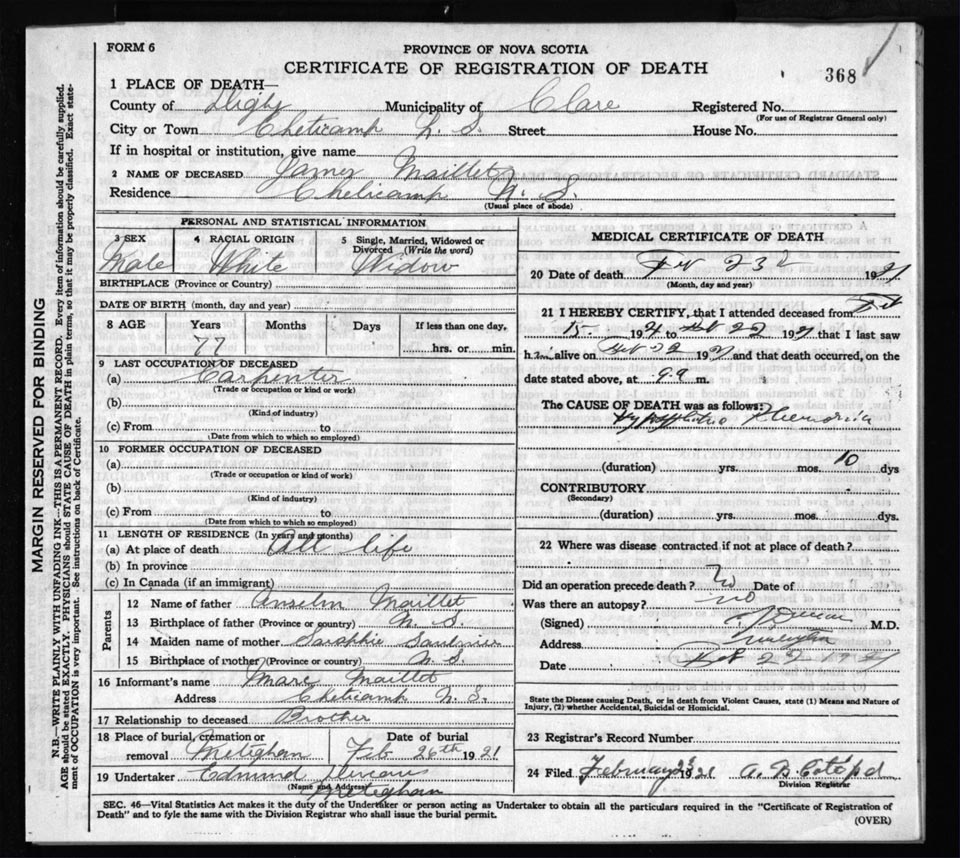 FORM 6
PROVINCE OF NOVA SCOTIA
CERTIFICATE OF REGISTRATION OF DEATH
368
1 PLACE OF DEATH—
County of Digby Municipality of Clare Registered No.
(For use of Registrar General only)
City or Town Cheticamp N. S. Street House No.
If in hospital or institution, give name
2 NAME OF DECEASED James Maillet
Residence Cheticamp N. S.
(Usual place of abode)
PERSONAL AND STATISTICAL INFORMATION
3 SEX Male
4 RACIAL ORIGIN White
5 Single, Married, Widowed or Divorced (Write the word) Widow
BIRTHPLACE (Province or Country)
DATE OF BIRTH (month, day and year)
8 AGE Years Months Days If less than one day,
77 hrs. or min.
9 LAST OCCUPATION OF DECEASED
(a) Carpenter
(Trade or occupation or kind or work)
(b)
(Kind of industry)
(c) From to
(Date from which to which so employed)
10 FORMER OCCUPATION OF DECEASED
(a)
(Trade or occupation or kind of work)
(b)
(Kind of industry)
(c) From to
(Date from which to which so employed)
11 LENGTH OF RESIDENCE (In years and months)
(a) At place of death All life
(b) In province
(c) In Canada (if an immigrant)
Parents
12 Name of father Anselm Maillet
13 Birthplace of father (Province or country) N. S.
14 Maiden name of mother Saraphie Saulnier
15 Birthplace of mother (Province or country) N. S.
16 Informant's name Marc Maillet
Address Cheticamp N. S.
17 Relationship to deceased Brother
18 Place of burial, cremation or removal Metighan
Date of burial Feb 26th 1921
19 Undertaker Edmund
(Name and Address)
Metighan
MEDICAL CERTIFICATE OF DEATH
20 Date of death Feb 23 1921
(Month, day and year)
21 I HEREBY CERTIFY, that I attended deceased from Feb
15 1921 to Feb 22 1921 that I last saw
him alive on Feb 22 1921 and that death occurred, on the
date stated above, at 9 a m.
The CAUSE OF DEATH was as follows:
(duration) yrs. mos. 10 dys
CONTRIBUTORY
(Secondary)
(duration) yrs. mos. dys.
22 Where was disease contracted if not at place of death?
Did an operation precede death? no Date of
Was there an autopsy? no
(Signed) M.D.
Address
Date
State the Disease causing Death, or in death from Violent Causes, state (1) Means and Nature of
Injury, (2) whether Accidental, Suicidal or Homicidal.
23 Registrar's Record Number
24 Filed February 1921
Division Registrar
SEC. 46—Vital Statistics Act makes it the duty of the Undertaker or person acting as Undertaker to obtain all the particulars required in the "Certificate of Registration of
Death" and to fyle the same with the Division Registrar who shall issue the burial permit.
(OVER)
MARGIN RESERVED FOR BINDING
N.B.—WRITE PLAINLY WITH UNFADING INK—THIS IS A PERMANENT RECORD. Every item of information should be carefully supplied.
AGE should be stated EXACTLY. PHYSICIANS should STATE CAUSE OF DEATH in plain terms, so that it may be properly classified. Exact state-
ment of OCCUPATION is very important. See instructions on back of Certificate.